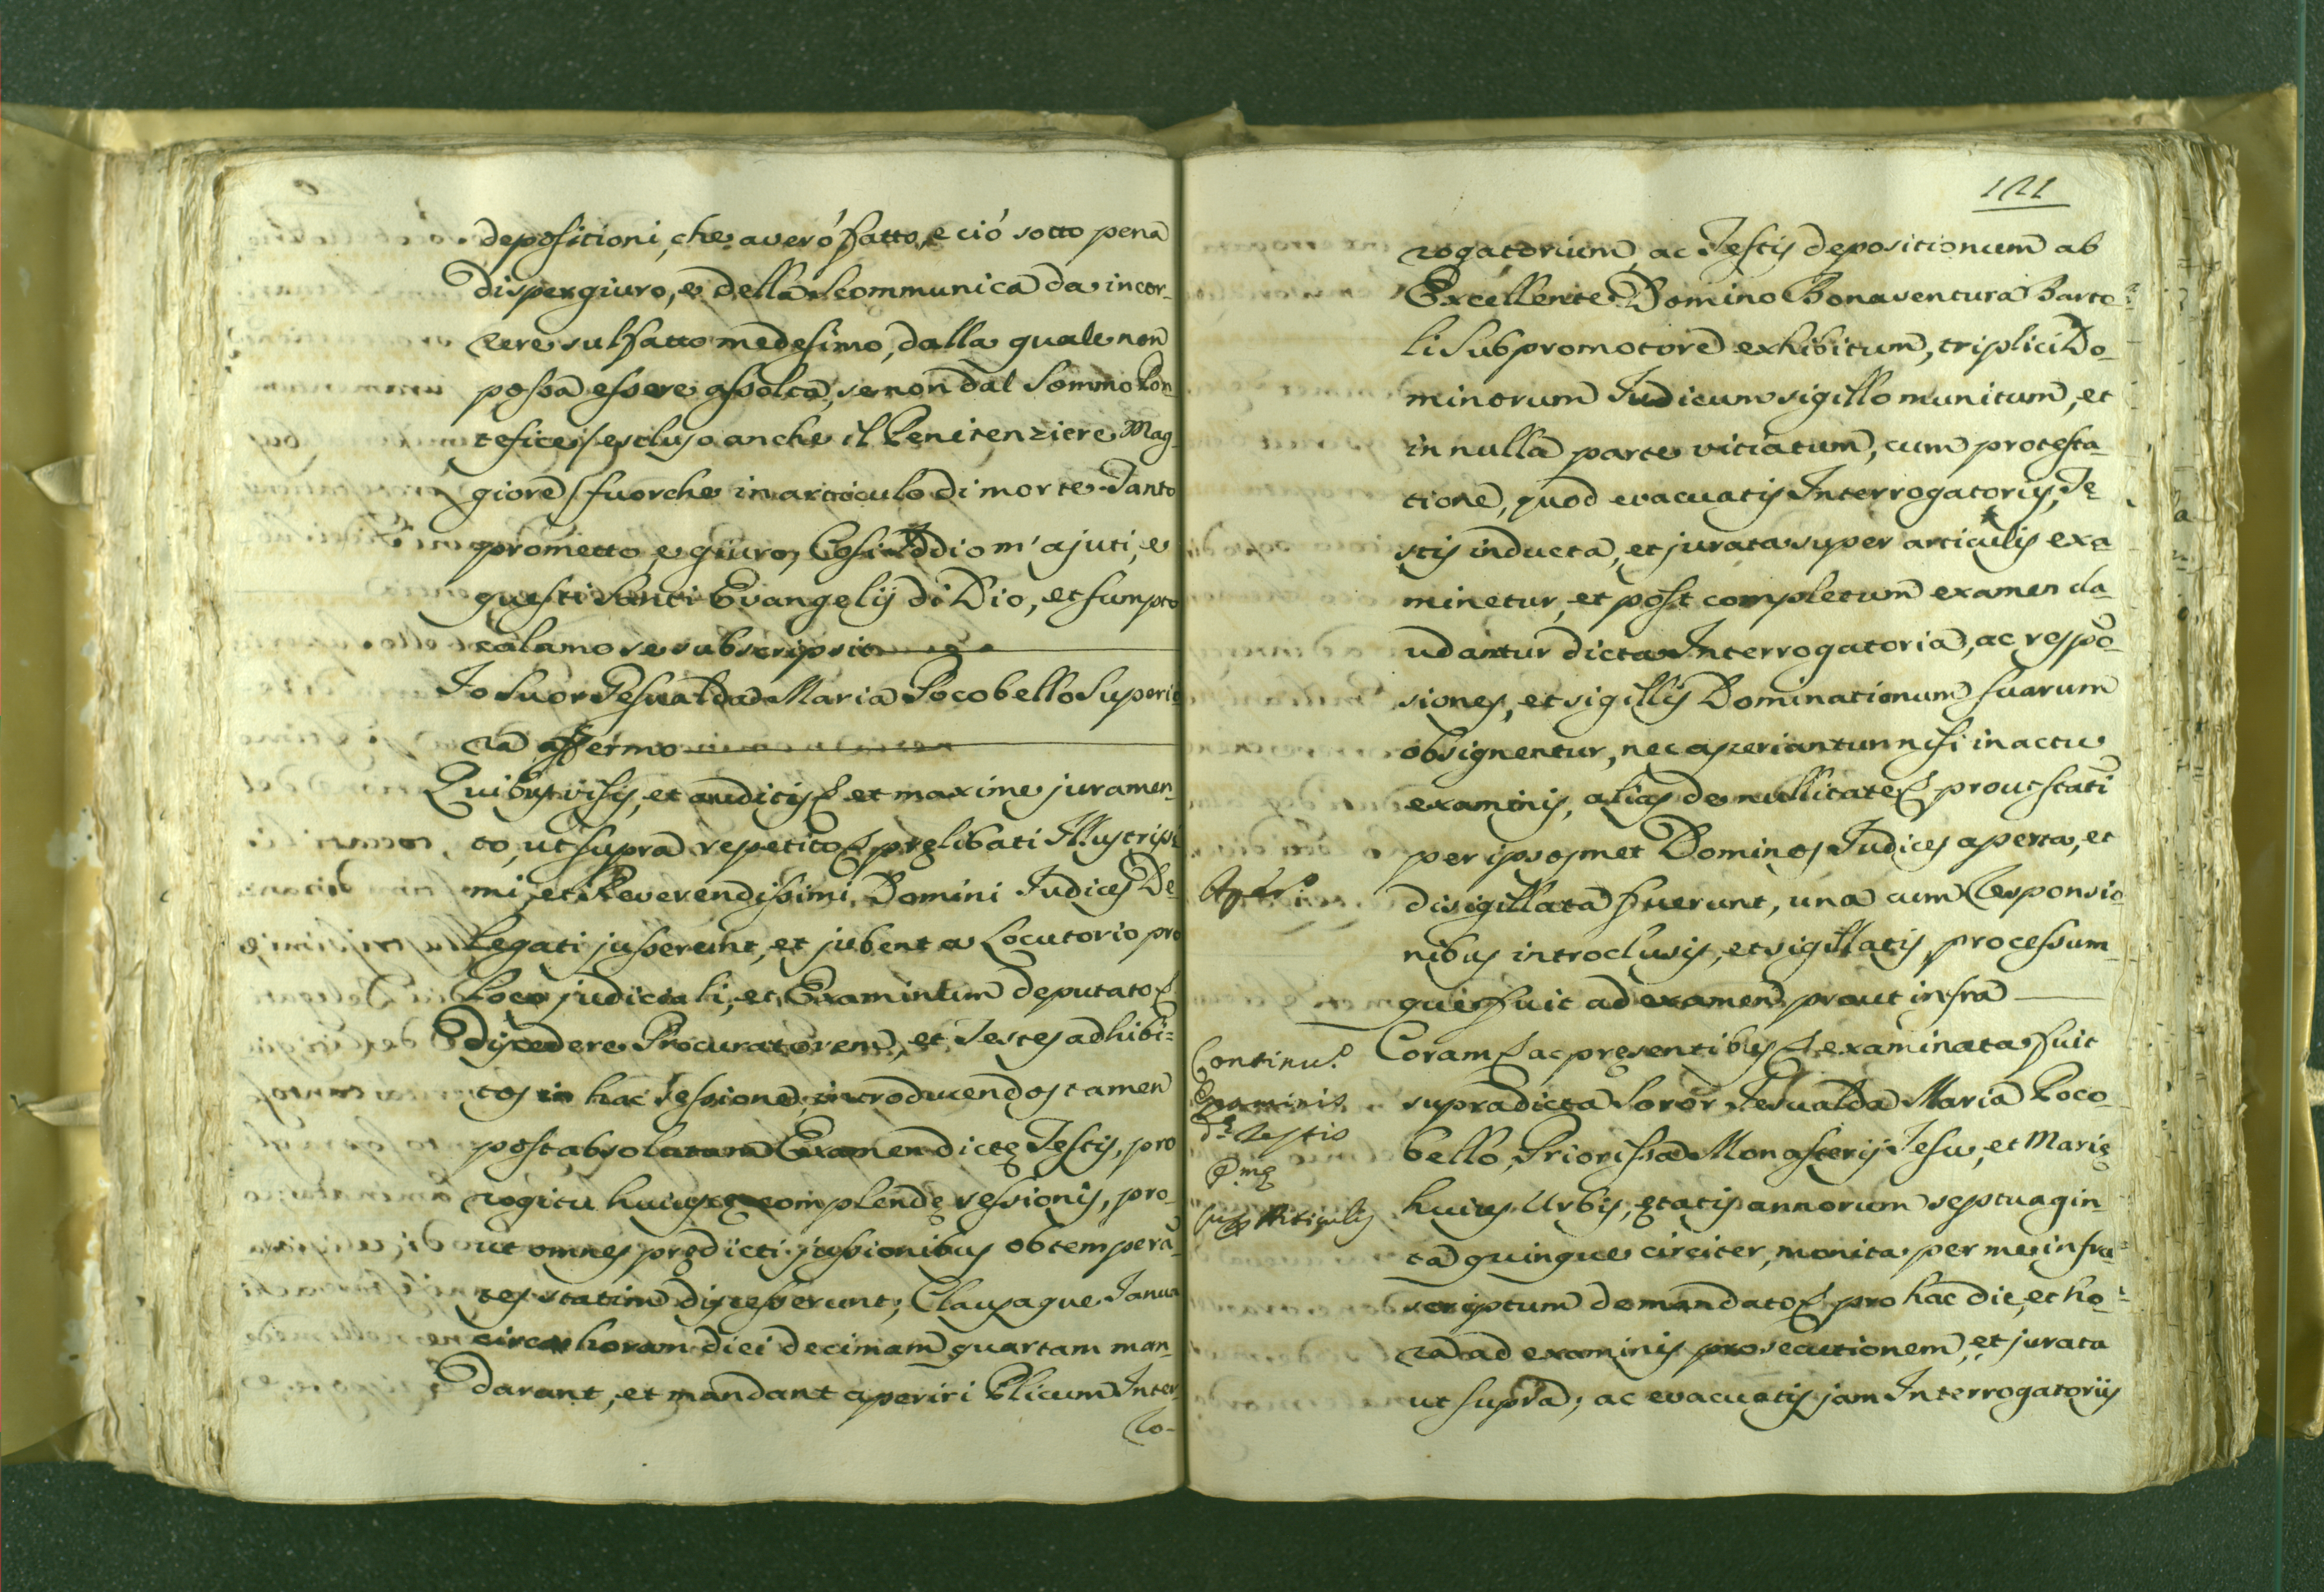 depositioni, che averó fatto, e ció sotto pena
dispergiuro, e della scommunica da incor-
rere sul fatto medesimo, dalla quale non
possa essere assolta, se non dal Sommo Pon
tefice / escluso anche il Penitenziere Mag-
giore / fuorche in articulo di morte. Tanto
prometto, e giuro, Cosi Iddio m'ajuti, e
questi Santi Evangelij di Dio, et sumpto
calamo se subscripsit
Io Suor Gesualda Maria Pocobello Superio
ra affermo
Quibus visis, et auditis et maxime juramen-
to, ut supra repetito pręlibati Illustrissi
mi, et Reverendissimi Domini Iudices De
legati jusserunt, et jubent a Locutorio pro
Loco judiciali, et Examinum deputato
discedere Procuratorem, et Testes adhibi=
tos in hac sessione, introducendos tamen
post absolutum Examen dictę Testis, pro
rogitu huius complendę sessionis, pro-
ut omnes prędicti jussionibus obtemperā
tes statim discesserunt; Clausaque Ianua
circa horam diei decimam quartam man-
darunt, et mandant aperiri Plicum Inter-
ro-
121
rogatorium, ac Testis depositionum ab
Excellente Domino Bonaventura Barto=
li Subpromotore exhibitum, triplici Do-
minorum Iudicum sigillo munitum, et
in nulla parte vitiatum, cum protesta-
tione, quod evacuatis Interrogatorijs, Te
stis inducta, et jurata super articulis exa-
minetur, et post completum examen cla-
udantur dicta Interrogatoria, ac respō-
siones, et sigillis Dominationum suarum
obsignentur, nec aperiantur nisi in actu
examinis, alias de nullitate prout statī
per ipsosmet Dominos Iudices aperta, et
disigillata fuerunt, una cum Responsio-
nibus introclusis, et sigillatis, processum-
que fuit ad examen prout infra
Continu.o
Examinis
Testis
sup Articulis
Coram ac pręsentibus examinata fuit
supradicta Soror Gesualda Maria Poco-
bello, Priorissa Monasterij Iesu, et Marię
huius Urbis, ętatis annorum septuagin-
ta quinque circiter, monita per me infra=
scriptum de mandato pro hac die, et ho-
ra ad examinis prosecutionem, et jurata
ut supra; ac evacuatis jam Interrogatorijs